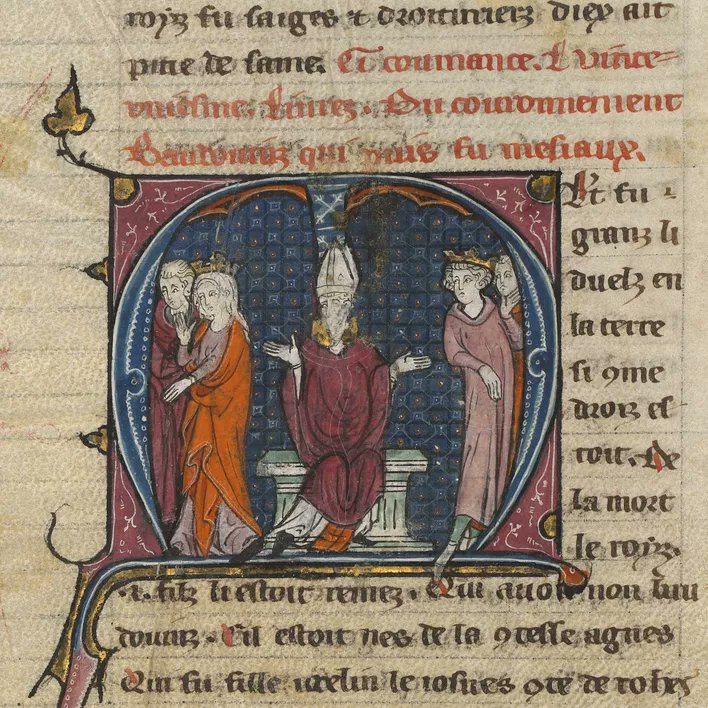 roys fu saiges ⁊ droituriers diex ait
pitie de same. Et coumance. l vinte
uniesme. liurez. Du couronnement
Baudouin qui puis fu mesiaux.
Mt fu
granz li
duelz en
la terre
si ꝯme
droiz es
toit. De
la mort
le roys.
.i. filz li estoit remez. Qui auoit non bau
douin. Cil estoit nes de la ꝯtesse agnes
Qui fu fille iocelin le ioenes ꝯte de rohes